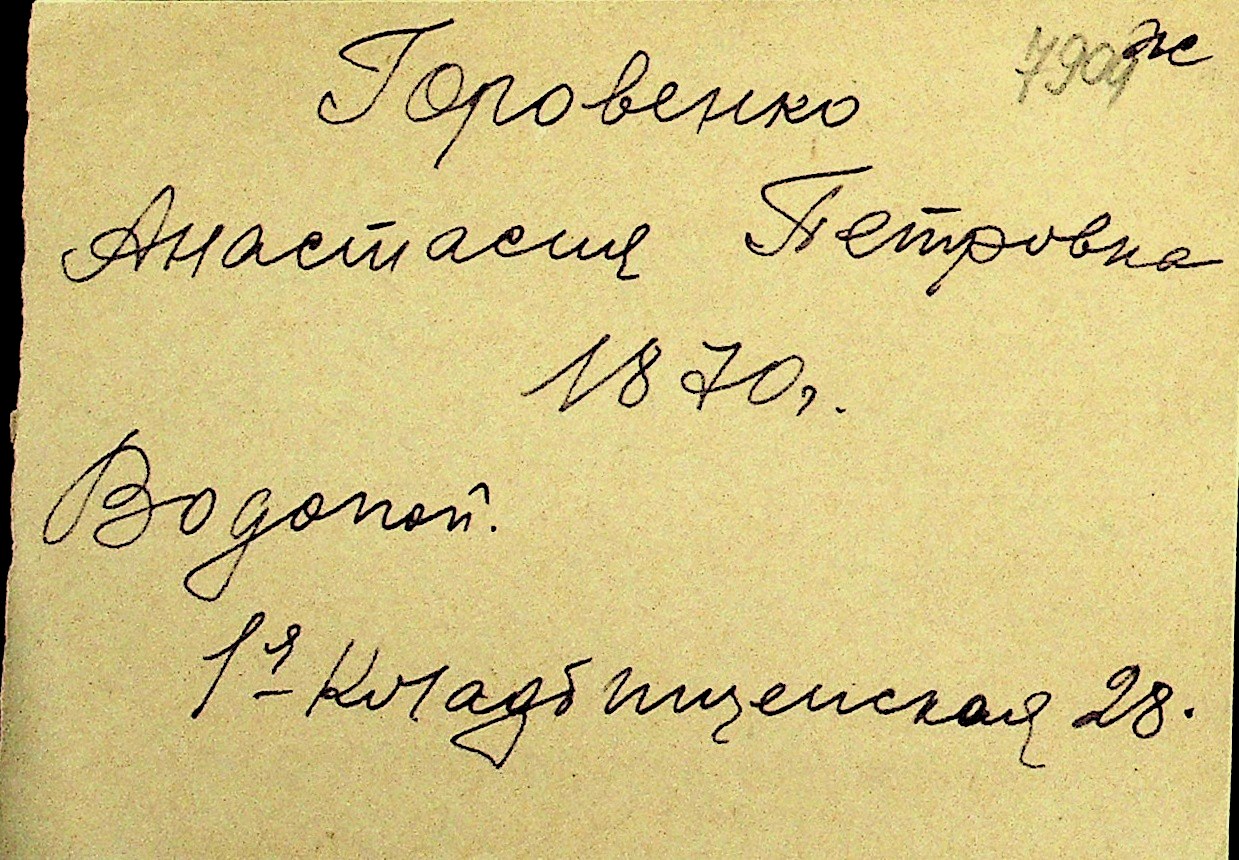 7904 ж
Горовенко
Анастасия Петровна
1870 г.
Водопой.
1я Кладбищенская 28.